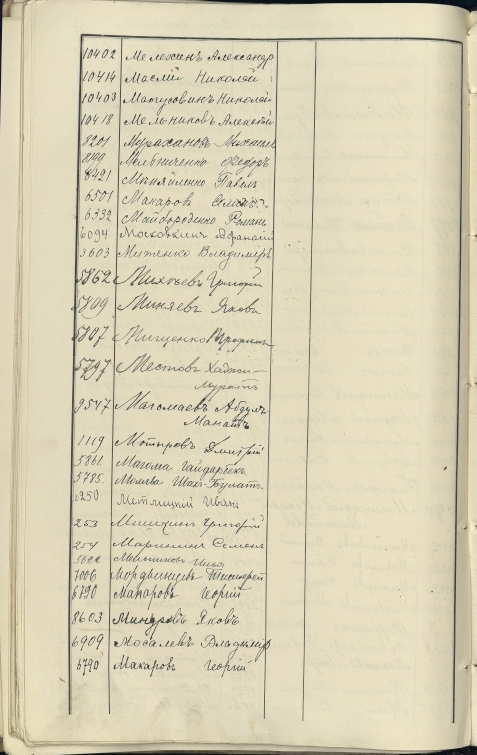 10402 Мелехинъ Александр
10414 Маслій Николай
10403 Матусовинъ Николай
10418 Мельниковъ Алексѣй
8201 Мурахановъ Михаил
8199 Мельниченко Ѳедоръ
8421 Михайленко Павелъ
6501 Макаров Семенъ
6332 Майбороденко Роман
6094 Московкинъ Афанасій
3603 Миженко Владиміръ
5862 Михѣевъ Григорій
5809 Миняевъ Яковъ
5807 Мищенко
5797 Местовъ Хаджи-
Муратъ
9547 Магомаевъ Абдулъ
Манапъ
1119 Мотыровъ Дмитрій
5861 Магома Гайдарбекъ
5785 Моцьва Шахъ-Булатъ
6250 Метлицкій Иванъ
253 Мишкинъ Григорій
254 Маринин Семенъ
Мельников Илья
7006 Мордвинцевъ Тимофей
6790 Макаровъ Георгій
8603 Миндровъ Яковъ
6909 Мосалевъ Владиміръ
6790 Макаровъ Георгій